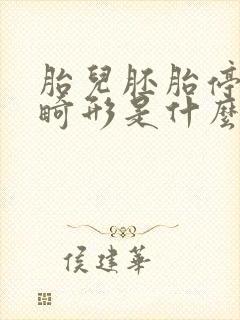 胎兒胚胎停
畸形是什麼
侯建華